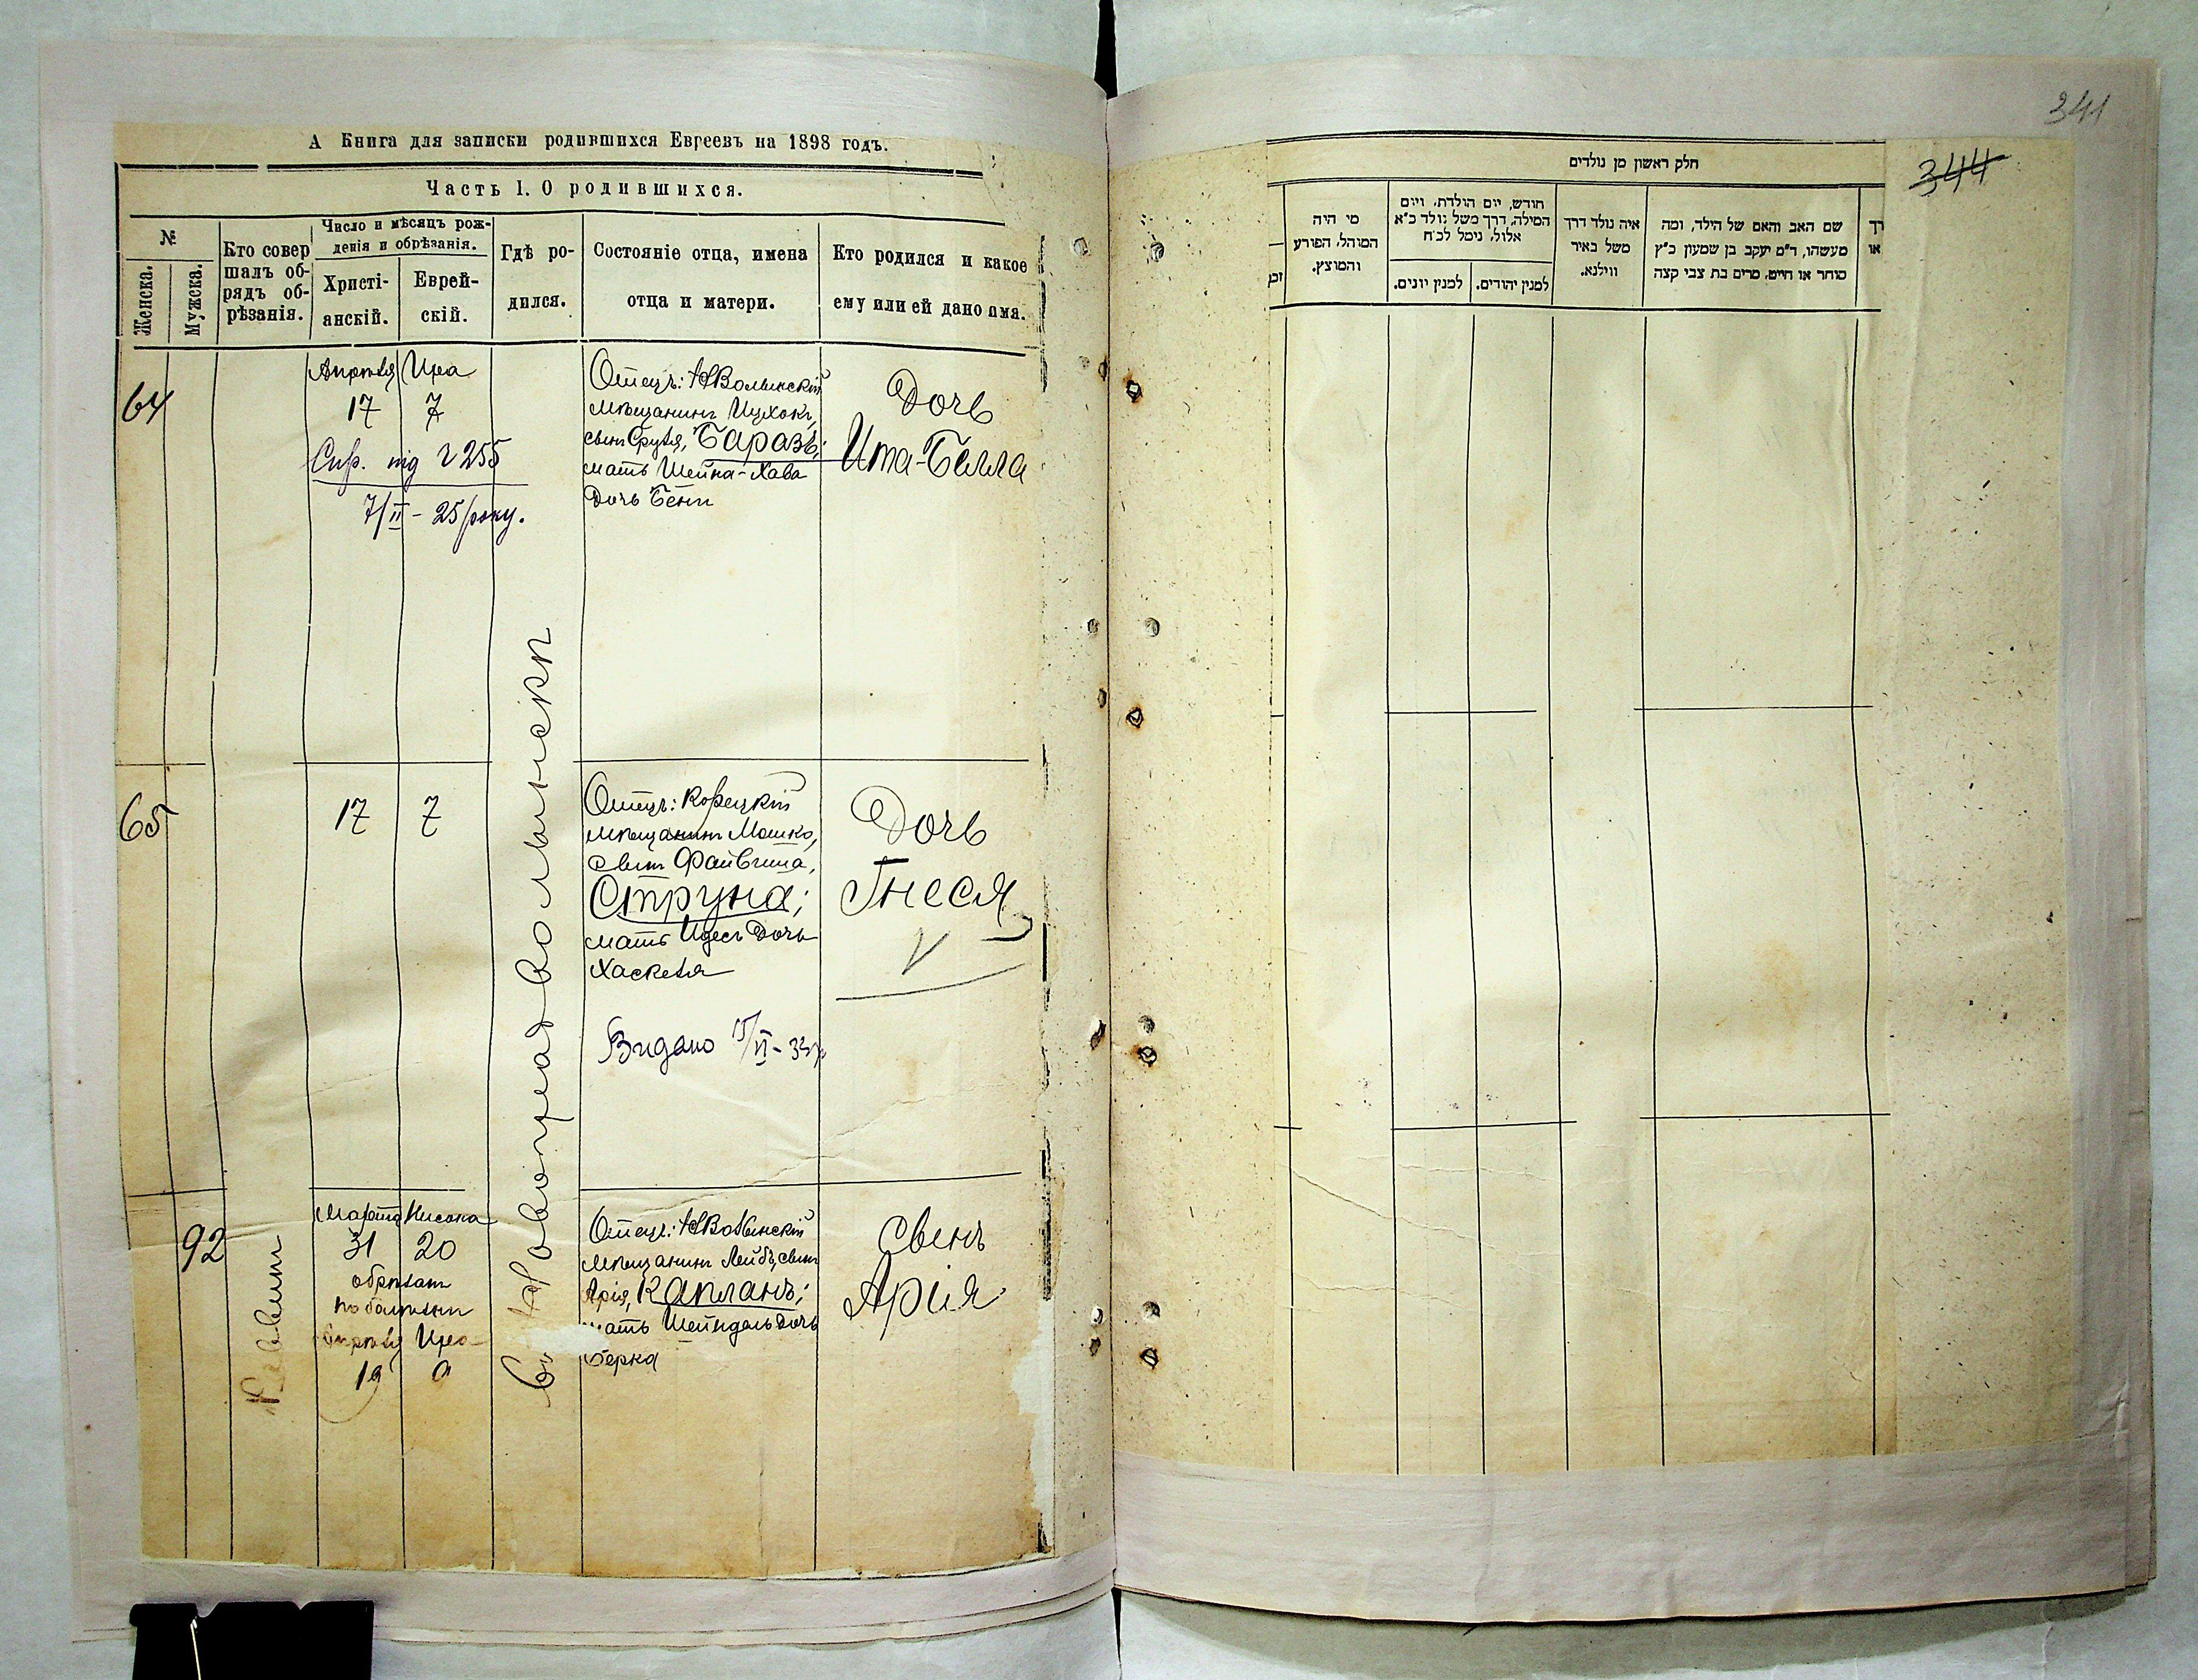 А Книга для записки родившихся Евреевъ на 1898 годъ.
Часть I. О родившихся.
№
Женска.
Мужска.
Кто совер
шалъ об-
рядъ об-
рѣзанія.
Число и мѣсяцъ рож-
денія и обрѣзанія.
Христі-
анскій.
Еврей-
скій.
Гдѣ ро-
дился.
Состояніе отца, имена
отца и матери.
Кто родился и какое
ему или ей дано имя.
64
Апрѣля Ира
17 7
Спр. під 255
7/II - 25 року.
Отецъ: НВолынскій
мѣщанинъ Ицхокъ,
сынъ Сруля, Баразъ;
мать Шейна-Хава
дочь Бени
Дочь
Ита-Бейла
въ Новоградволынскѣ
65
17 7
Отецъ: Корецкій
мѣщанинъ Мошко,
сынъ Файвиша,
Струна;
мать Идесъ дочь
Хаскеля
Видано /VI - 33
Дочь
Гнеся
V
92
Марта Нисона
31 20
обрѣзанъ
по болѣзни
Апрѣля Ира
19 9
Отецъ: НВолынскій
мѣщанинъ Лейбъ, сынъ
Арія, Капланъ;
мать Шейндель дочь
Берка
сынъ
Арія
341
344
חלק ראשון מן נולדים
מי היה
המוהל, הפורע
והמוצץ.
חודש, יום הולדת, ויום
המילה, דרך משל נולד כ"א
אלול, נימל לכ"ח
למנין יונים.
למנין יהודים.
איה נולד דרך
משל באיר
ווילנא.
שם האב והאם של הילד, ומה
מעשהו, ד"מ יעקב בן שמעון כ"ץ
סוחר או חייט, מרים בת צבי קצה
רך
או